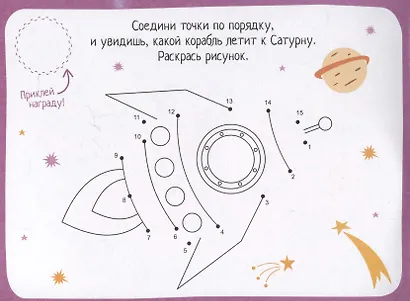 Соедини точки по порядку,
и увидишь, какой корабль летит к Сатурну.
Раскрась рисунок.
Приклей
награду!
13
14
12
11
15
10
1
9
2
8
3
4
7
6
5